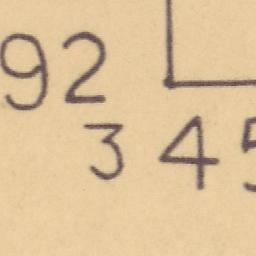 92
3 4 5